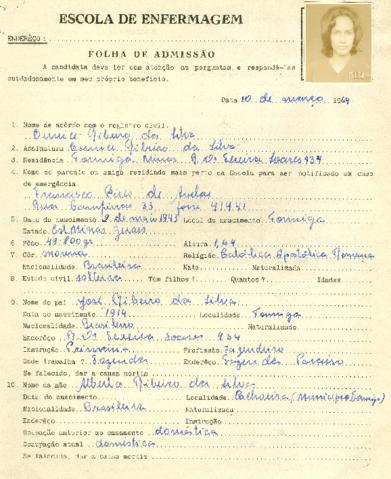 ESCOLA DE ENFERMAGEM
ENDERÊÇO :
FOLHA DE ADMISSÃO
A candidata deve ler com atenção as perguntas e respondê-las
cuidadosamente em seu próprio benefício.
Data 10 de março 1964
1. Nome de acôrdo com o registro civil.
Eunice Ribeiro da Silva
2. Assinatura Eunice Ribeiro da Silva
3. Residência Formiga Minas R. Dr. Teixeira Soares 934
4. Nome do parente ou amigo residindo mais perto da Escola para ser notificado em caso
de emergência.
Francisco de
Rua Campinas 33 fone 41941
5. Data do nascimento 9 de maio 1943 Local do nascimento Formiga
Estado Est Minas Gerais
6. Pêso: 49.800 gr Altura: 1,64
7. Côr: morena Religião Católica Apostólica Romana
Nacionalidade Brasileira Nata Naturalizada
8. Estado civil solteira Tem filhos ? Quantos ? Idades
9. Nome do pai José Ribeiro da Silva
Data do nascimento 1914 Localidade Formiga
Nacionalidade Brasileiro Naturalizado
Enderêço R. Dr. Teixeira Soares 934
Instrução Primária Profissão Fazendeiro
Onde trabalha ? Fazenda Enderêço: Paraíso
Se falecido, dar a causa mortis
10. Nome da mãe Alberta Ribeiro da Silva
Data do nascimento Localidade: (Município Formiga)
Nacionalidade Brasileira Naturalizada
Enderêço Instrução
Ocupação anterior ao casamento doméstica
Ocupação atual doméstica
Se falecida, dar a causa mortis